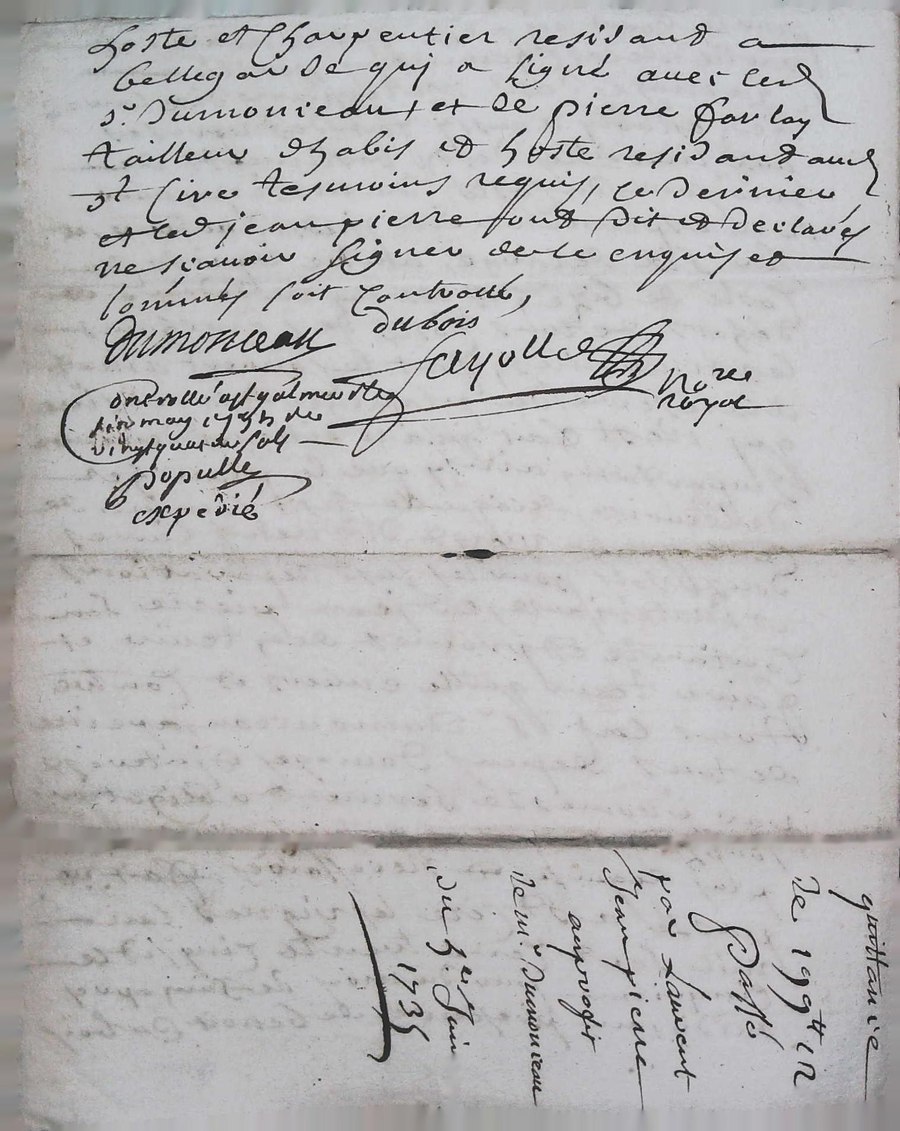 hoste et Charpentier residant a
bellegarde qui a signé avec led
sr. Dumonceau, et de pierre farlay
tailleur dhabis et hoste residant aud
st Cire tesmoins requis, ce dernier
et led jean pierre ont dit et declarés
ne scavoir signer de ce enquis et
sommés soit Controllé,
dumonceau dubois
fayolle Nore
royal
Controllé a st galmier le
may 1735 Re
vingt quatre sols
Populle
expedié
quittance
de 199lt 12
Passé
par Laurent
Jean pierre
au profit
de mr. Dumonceau
du 5e Juin
1735